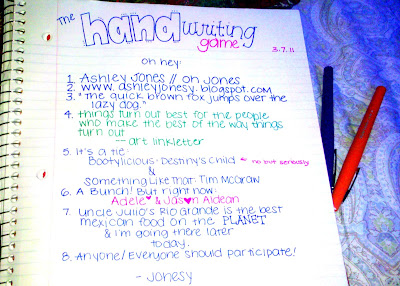 The hand writing
game
3.7.11
oh hey!
1. Ashley Jones // oh Jones
2. www.ashleyjonesy.blogspot.com
3. "The quick brown fox jumps over the
lazy dog."
4. things turn out best for the people
who make the best of the way things
turn out
— art linkletter
5. It's a tie:
Bootylicious: Destiny's child ← no but seriously
&
Something Like That: Tim McGraw
6. A Bunch! But right now:
Adele ♥ & Jason Aldean
7. Uncle Julio's Rio Grande is the best
mexican food on the PLANET
& i'm going there later
today.
8. Anyone/Everyone should participate!
- Jonesy